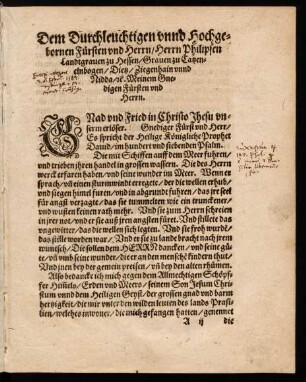 Dem Durchleuchtigen vnnd Hochge-
bornen Fürsten vnd Herrn / Herrn Philipsen
Landtgrauen zu Hessen / Grauen zu Catzen-
elnbogen / Dietz / Ziegenhain vnnd
Nidda / ꝛc. Meinem Gne-
digen Fürsten vnd
Herrn.
GNad vnd Fried in Christo Jhesu vn-
serm erlöser. Gnediger Fürst vnd Herr /
Es spricht der Heilige Königliche Prophet
Dauid / im hundert vnd siebenden Psalm.
Die mit Schiffen auff dem Meer fuhren /
vnd trieben jhren handel in grossen wassern. Die des Herrn
werck erfaren haben / vnd seine wunder im Meer. Wenn er
sprach / vnd einen sturmwind erregete / der die wellen erhub /
vnd siegen himel furen / vnd in abgrund fuhren / das jre seel
für angst verzagte / das sie tummelten wie ein trunckener /
vnd wusten keinen rath mehr. Vnd sie zum Herrn schreien
in jrer not / vnd er sie auß jren angsten füret. Vnd stillete das
vngewitter / das die wellen sich legten. Vnd sie froh wurdẽ
das stille worden war / Vnd er sie zu lande bracht nach jrem
wunsch. Die sollen dem HERRN dancken / vmb seine gü-
te / vñ vmb seine wunder / die er an den menschẽ kindern thut /
Vnd jnen bey der gemein preisen / vñ bey den alten rhümen.
Also bedancke ich mich gegen dem Allmechtigen Schöpf-
fer Himels / Erden vnd Meers / seinem Son Jesum Chri-
stum vnnd dem Heiligen Geyst / der grossen gnad vnd barm
hertzigkeit / die mir vnter den wilden leuten des lands Prasi-
lien / welches inwoner / die mich gefangen hatten / genennet
A ij die